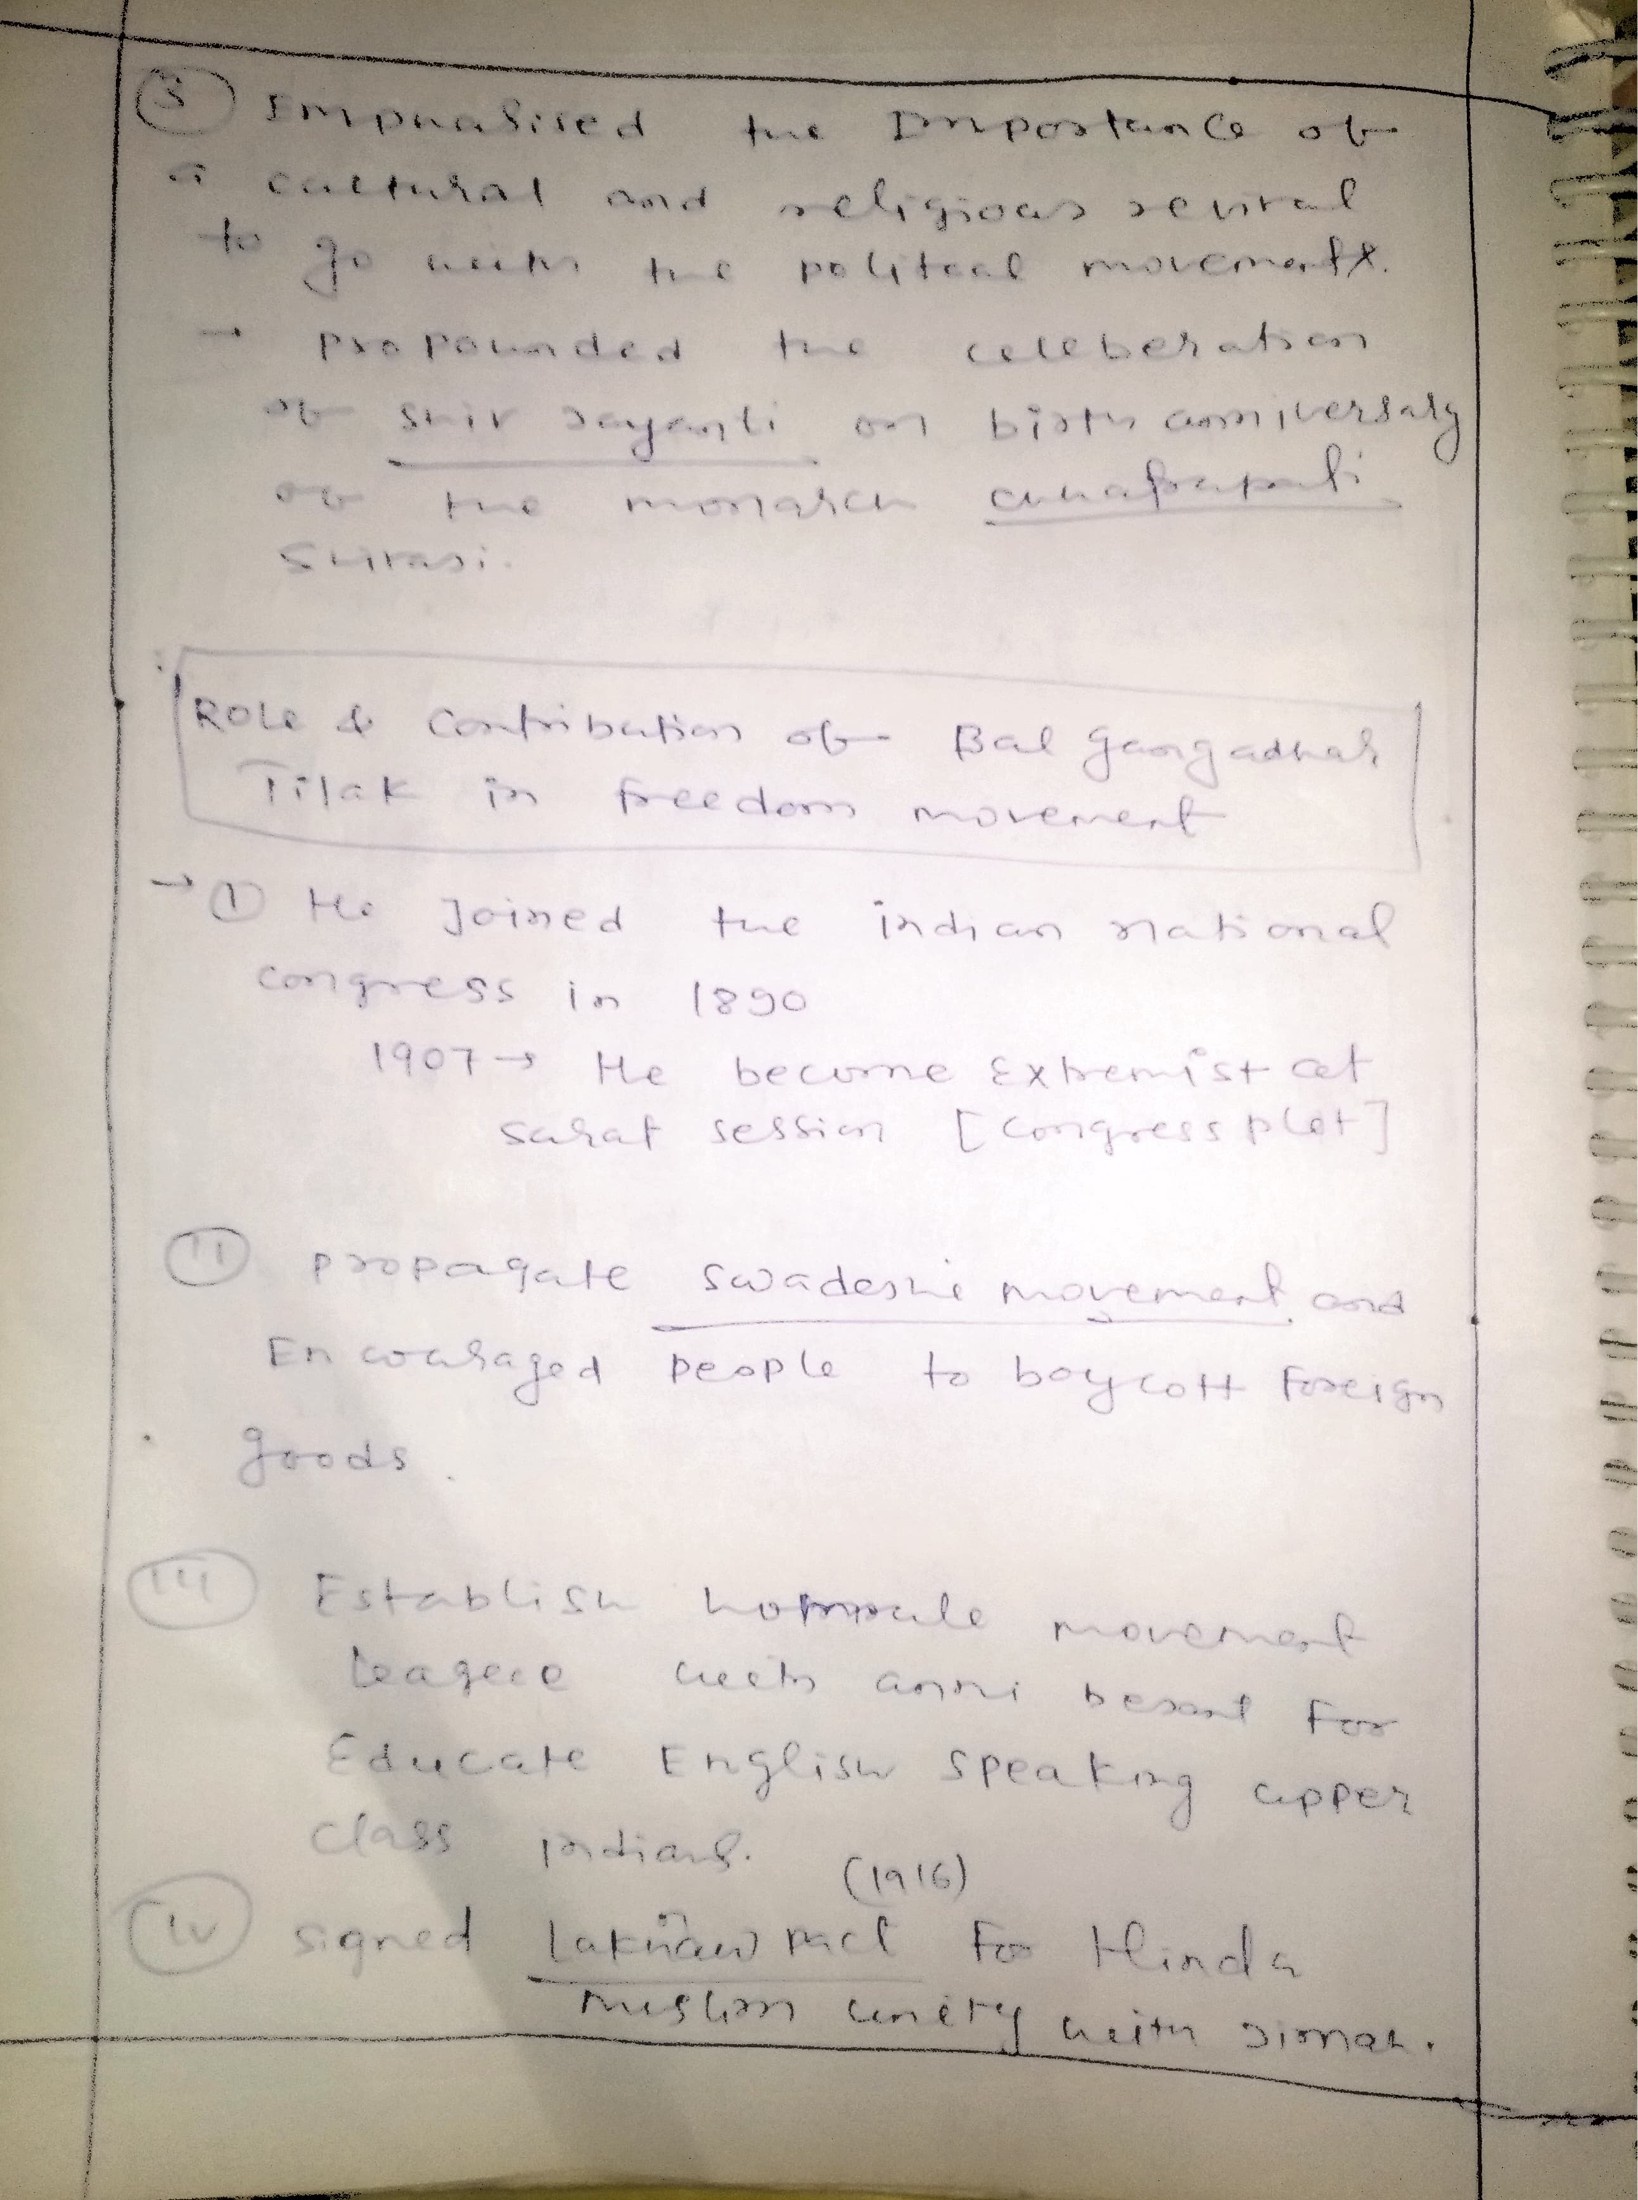 3 Emphasised the Importance of
a cultural and religious revival
to go with the political movement.
→ propounded the celeberation
of Shiv Jayanti on birth anniversary
of the monarch Chhatrapati
Shivaji.
Role & Contribution of Bal Gangadhar
Tilak in freedom movement
→ ① He Joined the indian national
congress in 1890
1907 → He become Extremist at
Surat session [Congress plet]
II propagate Swadeshi movement and
Encouraged people to boycott Foreign
goods.
III Establish homrule movement
league with anni besant For
Educate English speaking upper
class indians.
(1916)
IV signed Lakhnaw Pact For Hindu
muslim unity with Jinnah.